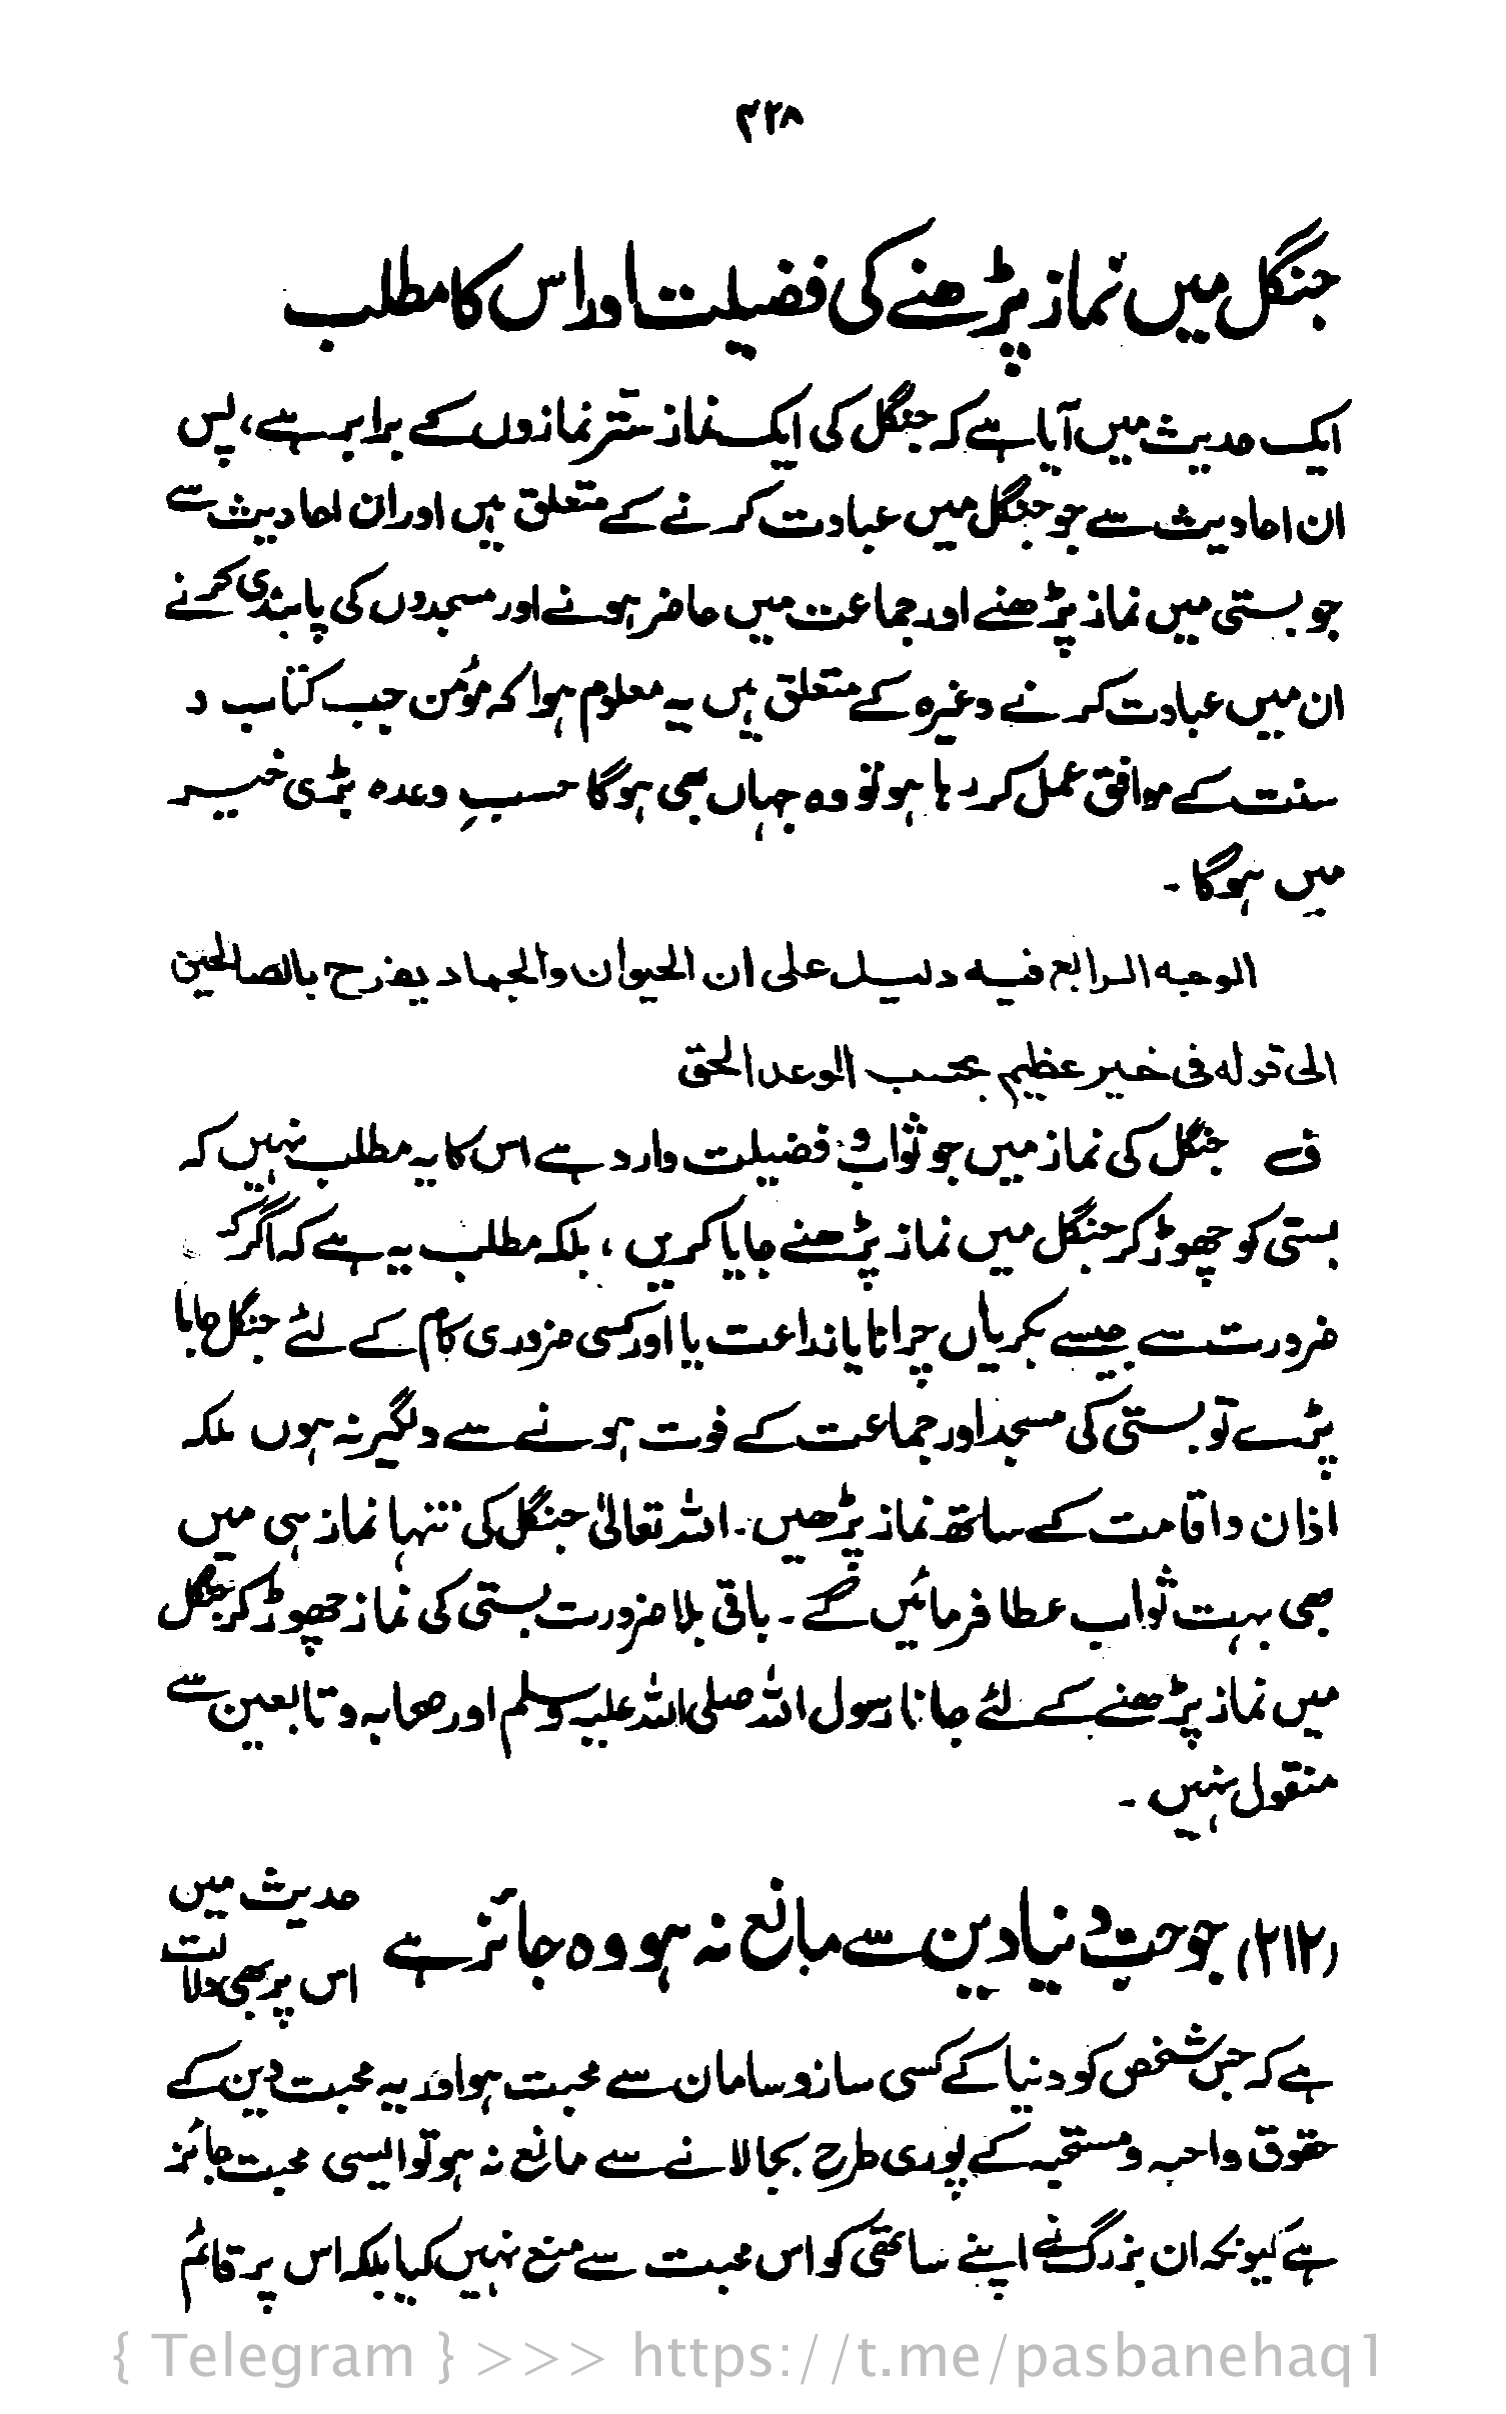 ۴۲۸
جنگل میں نماز پڑھنے کی فضیلت اور اس کا مطلب
ایک حدیث میں آیا ہے کہ جنگل کی ایک نماز ستّر نمازوں کے برابر ہے، پس
ان احادیث سے جو جنگل میں عبادت کرنے کے متعلق ہیں اور ان احادیث سے
جو بستی میں نماز پڑھنے اور جماعت میں حاضر ہونے اور مسجدوں کی پابندی کرنے
ان میں عبادت کرنے وغیرہ کے متعلق ہیں یہ معلوم ہوا کہ مؤمن جب کتاب و
سنت کے موافق عمل کر رہا ہو تو وہ جہاں بھی ہوگا حسبِ وعدہ بڑی خیر
میں ہوگا ۔
الوجه الرابع فيه دليل على ان الحيوان والجماد يفرح بالصالحين
الى قوله فى خير عظيم بحسب الوعد الحق
ف جنگل کی نماز میں جو ثواب و فضیلت وارد ہے اس کا یہ مطلب نہیں کہ
بستی کو چھوڑ کر جنگل میں نماز پڑھنے جایا کریں ، بلکہ مطلب یہ ہے کہ اگر کسی
ضرورت سے جیسے بکریاں چرانا یا زراعت یا اور کسی ضروری کام کے لئے جنگل جانا
پڑے تو بستی کی مسجد اور جماعت کے فوت ہونے سے دلگیر نہ ہوں بلکہ
اذان و اقامت کے ساتھ نماز پڑھیں ۔ اللہ تعالیٰ جنگل کی تنہا نماز ہی میں
بھی بہت ثواب عطا فرمائیں گے ۔ باقی بلا ضرورت بستی کی نماز چھوڑ کر جنگل
میں نماز پڑھنے کے لئے جانا رسول اللہ صلی اللہ علیہ وسلم اور صحابہ و تابعین سے
منقول نہیں ۔
(۲۱۲) جو حبِّ دنیا دین سے مانع نہ ہو وہ جائز ہے حدیث میں
اس پر بھی دلالت
ہے کہ جس شخص کو دنیا کے کسی ساز و سامان سے محبت ہو اور یہ محبت دین کے
حقوق واجبہ و مستحبہ کے پوری طرح بجا لانے سے مانع نہ ہو تو ایسی محبت جائز
ہے کیونکہ ان بزرگ نے اپنے ساتھی کو اس محبت سے منع نہیں کیا بلکہ اس پر قائم
{ Telegram } >>> https://t.me/pasbanehaq1